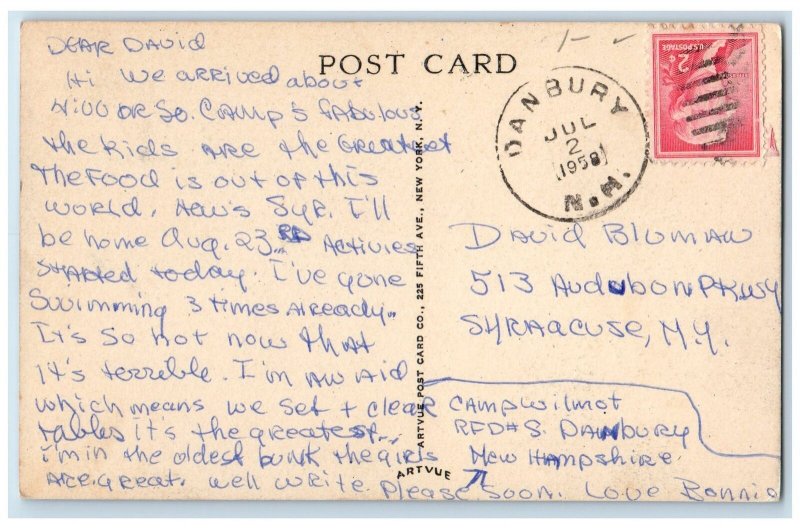 DEAR DAVID
POST CARD
Hi We arrived about
4:00 OR So. CAMP'S fabulous
the kids ARE the Greatest
The FOOD is out of this
world. How's Syr. I'll
be home Aug. 23 RD Activies
STARTED today. I've gone
Swimming 3 times already.
It's So hot now that
it's terrible. I'm AN AID
which means we Set + clear
tables it's the greatest...
I'm in the oldest bunk the girls
ARE great. Well write Please Soon. Love Bonnie
DANBURY
JUL
2
1958
N.H.
U.S. POSTAGE
2¢
David Bluman
513 Audubon PKWY
SYRACUSE, N.Y.
CAMP Wilmot
RFD#S. DANBURY
New HAMPSHIRE
ARTVUE POST CARD CO., 225 FIFTH AVE., NEW YORK, N. Y.
ARTVUE